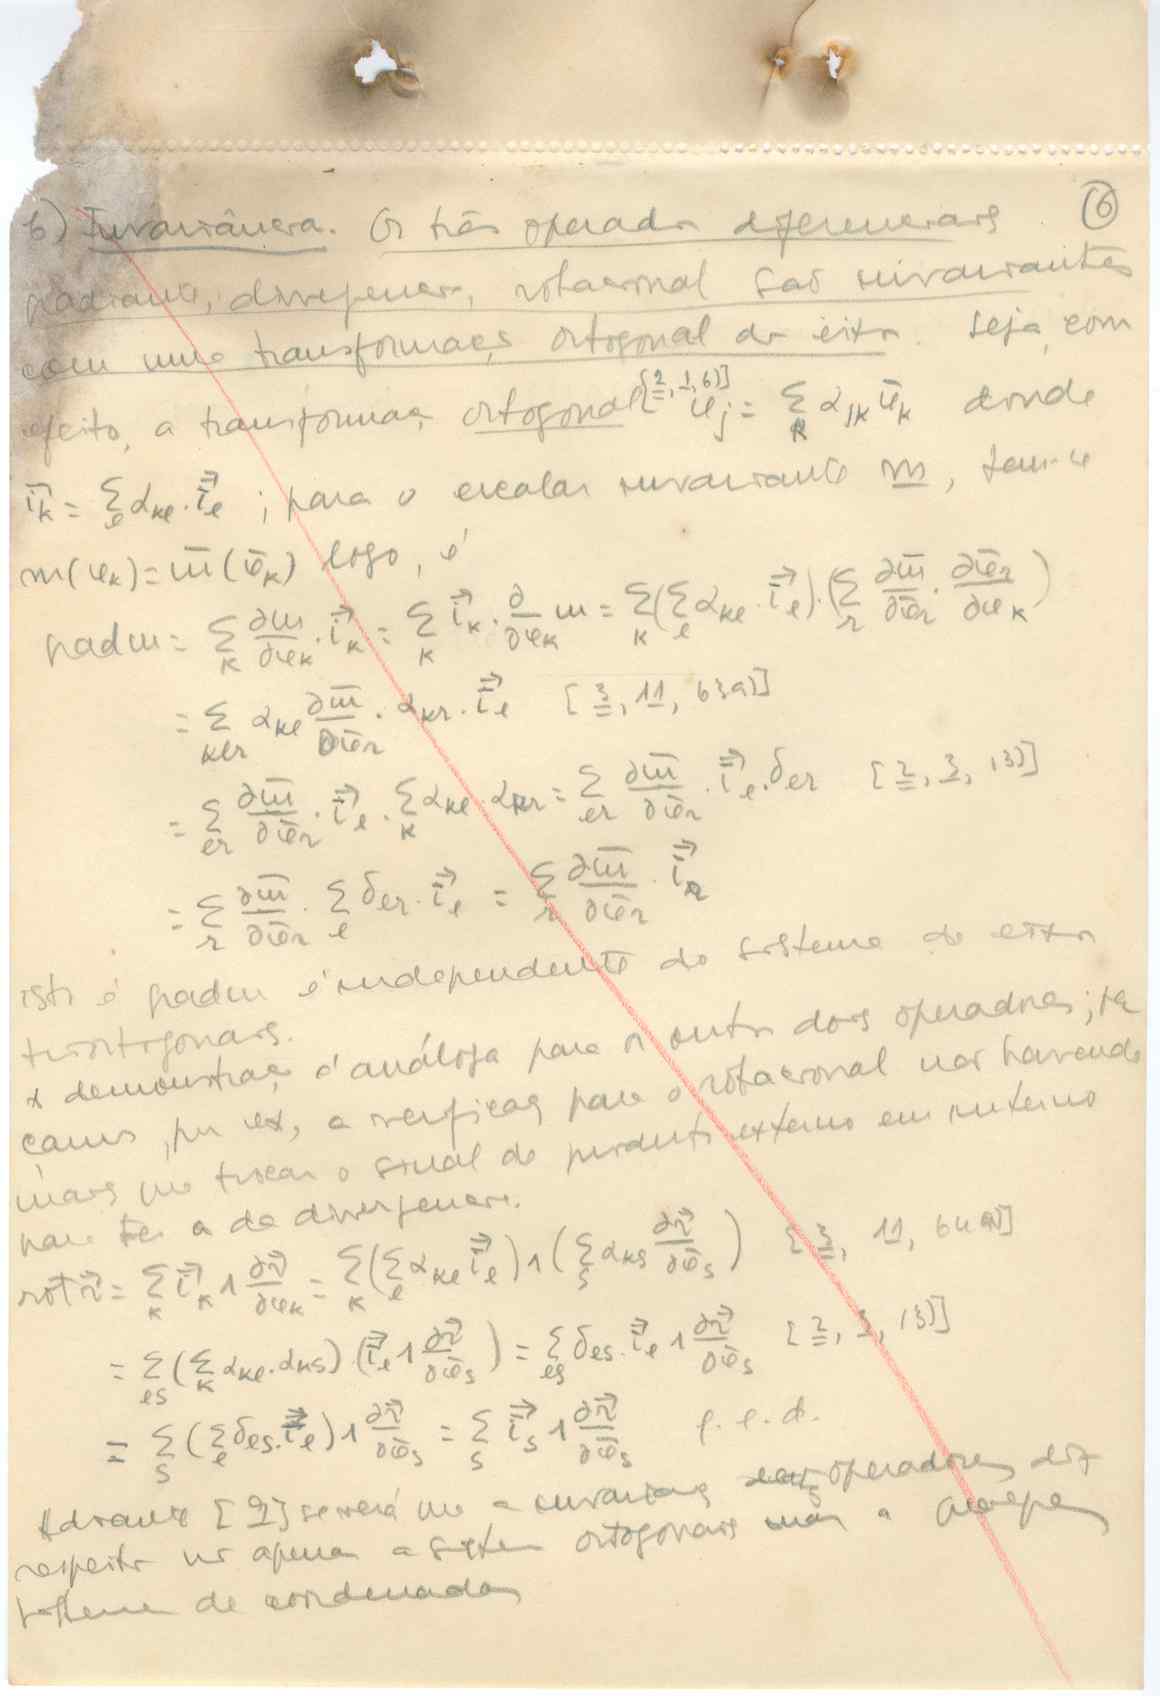 b) Invariância. Os três operadores diferenciais ⑥
gradiante, divergencia, rotacional são invariantes
com uma transformação ortogonal de eixos. Seja, com
efeito, a transformação ortogonal [2, 1, 6)] φ_j = Σ_k α_jk φ̄_k donde
i⃗_k = Σ_l α_kl · i̿⃗_l ; para o escalar invariante m, tem-se
m(φ_k) = m̄(φ̄_k) logo, é
grad m = Σ_k ∂m/∂φ_k · i⃗_k = Σ_k i⃗_k · ∂/∂φ_k m = Σ_k (Σ_l α_kl · i̿⃗_l) · (Σ_r ∂m̄/∂φ̄_r · ∂φ̄_r/∂φ_k)
= Σ_klr α_kl ∂m̄/∂φ̄_r · α_kr · i̿⃗_l [3, 11, 63a)]
= Σ_lr ∂m̄/∂φ̄_r · i̿⃗_l · Σ_k α_kl · α_kr = Σ_lr ∂m̄/∂φ̄_r · i̿⃗_l · δ_lr [2, 3, 13)]
= Σ_r ∂m̄/∂φ̄_r · Σ_l δ_lr · i̿⃗_l = Σ_r ∂m̄/∂φ̄_r · i̿⃗_r
isto é grad m é independente do sistema de eixos
triortogonais.
A demonstração é análoga para os outros dois operadores; fa
çamos, por ex, a verificação para o rotacional não havendo
mais que trocar o sinal de produto externo em interno
para ter a da divergencia.
rot r⃗ = Σ_k i⃗_k ∧ ∂r⃗/∂φ_k = Σ_k (Σ_l α_kl i̿⃗_l) ∧ (Σ_s α_ks ∂r⃗/∂φ̄_s) [3, 11, 64a)]
= Σ_ls (Σ_k α_kl · α_ks) · (i̿⃗_l ∧ ∂r⃗/∂φ̄_s) = Σ_ls δ_ls · i̿⃗_l ∧ ∂r⃗/∂φ̄_s [2, 3, 13)]
= Σ_s (Σ_l δ_ls · i̿⃗_l) ∧ ∂r⃗/∂φ̄_s = Σ_s i̿⃗_s ∧ ∂r⃗/∂φ̄_s q. e. d.
Adiante [9] se verá que a invariança operadores diz
respeito não apenas a sistemas ortogonais mas a qualquer
sistema de coordenadas